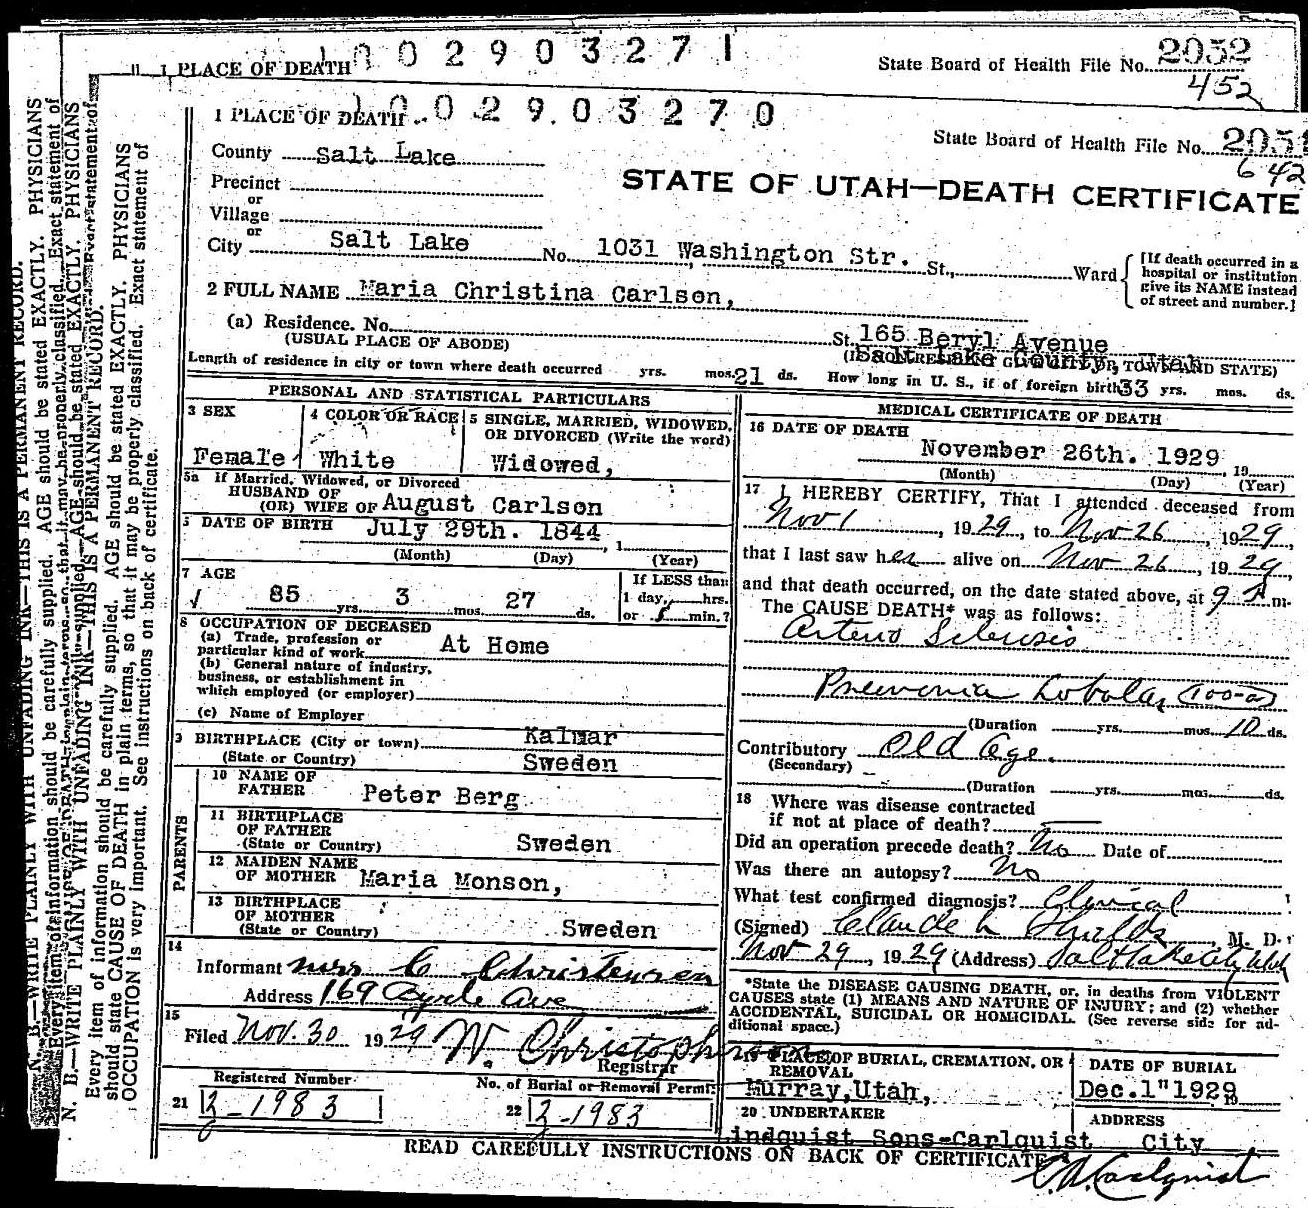 1 PLACE OF DEATH 1002903271
State Board of Health File No. 2052
452
1 PLACE OF DEATH 1002903270
State Board of Health File No. 2051
642
County Salt Lake
STATE OF UTAH—DEATH CERTIFICATE
Precinct
or
Village
or
City Salt Lake No. 1031 Washington Str. St., Ward
[If death occurred in a hospital or institution give its NAME instead of street and number.]
2 FULL NAME Maria Christina Carlson,
(a) Residence. No. St. 165 Beryl Avenue
(USUAL PLACE OF ABODE) Salt Lake County, Utah
Length of residence in city or town where death occurred yrs. mos. 21 ds. How long in U. S., if of foreign birth 33 yrs. mos. ds.
PERSONAL AND STATISTICAL PARTICULARS
3 SEX
Female
4 COLOR OR RACE
White
5 SINGLE, MARRIED, WIDOWED, OR DIVORCED (Write the word)
Widowed,
5a If Married, Widowed, or Divorced
HUSBAND OF
(OR) WIFE OF August Carlson
DATE OF BIRTH July 29th. 1844, 1
(Month) (Day) (Year)
7 AGE
85 yrs. 3 mos. 27 ds.
If LESS than
1 day, hrs.
or min.?
8 OCCUPATION OF DECEASED
(a) Trade, profession or
particular kind of work At Home
(b) General nature of industry,
business, or establishment in
which employed (or employer)
(c) Name of Employer
9 BIRTHPLACE (City or town) Kalmar
(State or Country) Sweden
PARENTS
10 NAME OF
FATHER Peter Berg
11 BIRTHPLACE
OF FATHER
(State or Country) Sweden
12 MAIDEN NAME
OF MOTHER Maria Monson,
13 BIRTHPLACE
OF MOTHER
(State or Country) Sweden
14
Informant Mrs C Christensen
Address 169 Ave
15
Filed Nov. 30 1929 W. Christopherson
Registrar
Registered Number
21 2-1983
No. of Burial or Removal Permit
22 2-1983
MEDICAL CERTIFICATE OF DEATH
16 DATE OF DEATH
November 26th. 1929 19
(Month) (Day) (Year)
17 I HEREBY CERTIFY, That I attended deceased from
Nov 1, 1929, to Nov 26, 1929,
that I last saw her alive on Nov 26, 1929,
and that death occurred, on the date stated above, at 9 P m.
The CAUSE DEATH* was as follows:
Arterio Sclerosis
Pneumonia Lobular (100-a)
(Duration yrs. mos. 10 ds.
Contributory Old Age.
(Secondary)
(Duration yrs. mos. ds.
18 Where was disease contracted
if not at place of death?
Did an operation precede death? No Date of
Was there an autopsy? No
What test confirmed diagnosis? Clinical
(Signed) Claude L Shields, M. D.
Nov 29, 1929 (Address) Salt Lake City Utah
*State the DISEASE CAUSING DEATH, or, in deaths from VIOLENT
CAUSES state (1) MEANS AND NATURE OF INJURY; and (2) whether
ACCIDENTAL, SUICIDAL OR HOMICIDAL. (See reverse side for ad-
ditional space.)
19 PLACE OF BURIAL, CREMATION, OR
REMOVAL
Murray, Utah,
DATE OF BURIAL
Dec. 1" 1929
20 UNDERTAKER
Lindquist Sons-Carlquist
ADDRESS
City
READ CAREFULLY INSTRUCTIONS ON BACK OF CERTIFICATE
Carlquist
N. B.—WRITE PLAINLY WITH UNFADING INK—THIS IS A PERMANENT RECORD.
Every item of information should be carefully supplied. AGE should be stated EXACTLY. PHYSICIANS
should state CAUSE OF DEATH in plain terms, so that it may be properly classified. Exact statement of
OCCUPATION is very important. See instructions on back of certificate.